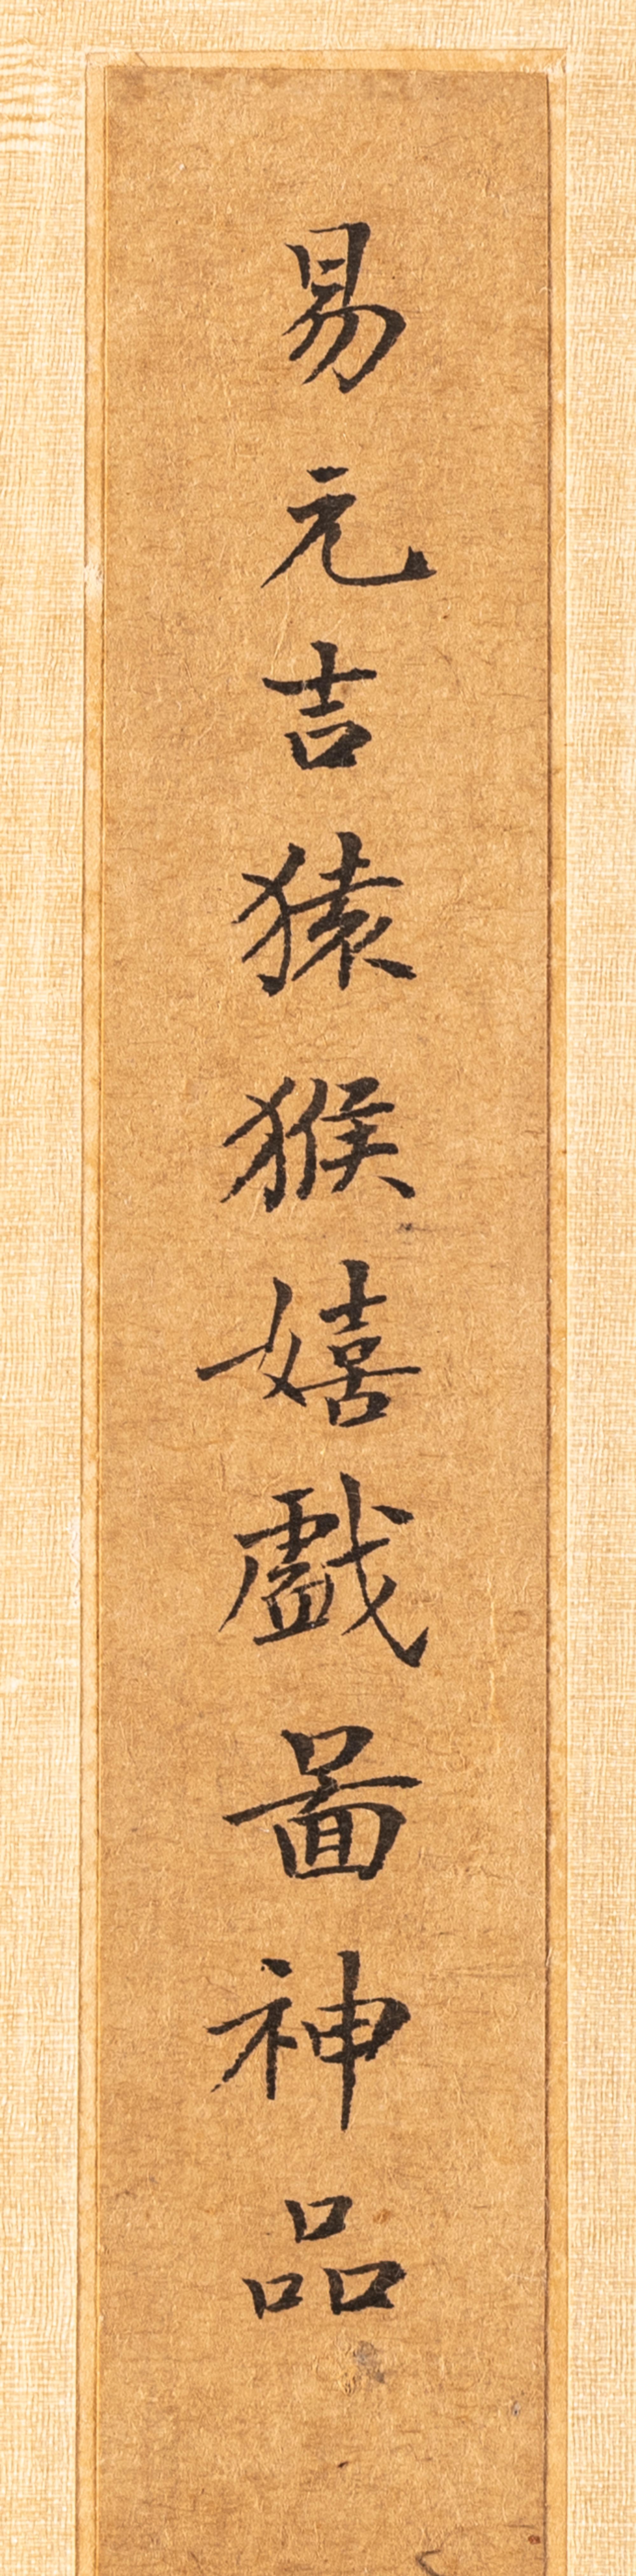 易元吉猿猴嬉戯啚神品